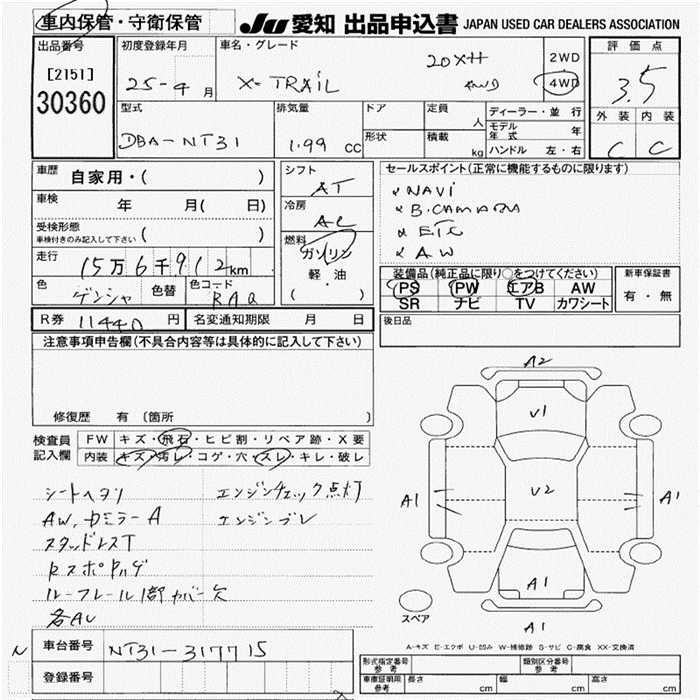 車内保管・守衛保管
JU 愛知 出品申込書 JAPAN USED CAR DEALERS ASSOCIATION
出品番号
[2151]
30360
初度登録年月
25-4月
車名・グレード
X-TRAIL
20X
4WD
2WD
4WD
評価点
3.5
外装 内装
C C
型式
DBA-NT31
排気量
1.99 cc
ドア
定員
人
形状
積載
kg
ディーラー・並行
モデル年式 年
ハンドル 左・右
車歴
自家用・( )
車検
年 月( 日)
受検形態
車検付きのみ記入して下さい ( )
走行
15万6千912km
色
色替
色コード
RAQ
シフト
AT
冷房
AC
燃料
ガソリン
軽油
( )
セールスポイント(正常に機能するものに限ります)
× NAVi
× B.CAMARA
× ETC
× AW
装備品(純正品に限り○をつけてください)
PS PW エアB AW
SR ナビ TV カワシート
新車保証書
有・無
R券 11440円
名変通知期限 月 日
後日品
注意事項申告欄(不具合内容等は具体的に記入して下さい)
修復歴 有 〔箇所
検査員記入欄
FW キズ・飛石・ヒビ割・リペア跡・X要
内装 キズ・汚レ・コゲ・穴・スレ・キレ・破レ
シートヘタリ
エンジンチェック点灯
AW,ドミラーA
エンジンブレ
スタッドレスT
Rスポ
ルーフレール1部カバー欠
各AU
A2
V1
V2
A1
A1
A1
A1
スペア
A-キズ E-エクボ U-凹み W-補修跡 S-サビ C-腐食 XX-交換済
N
車台番号
NT31-317715
登録番号
形式指定番号 参考
類別区分番号 参考
車庫証明用 参考
長さ cm
幅 cm
高さ cm